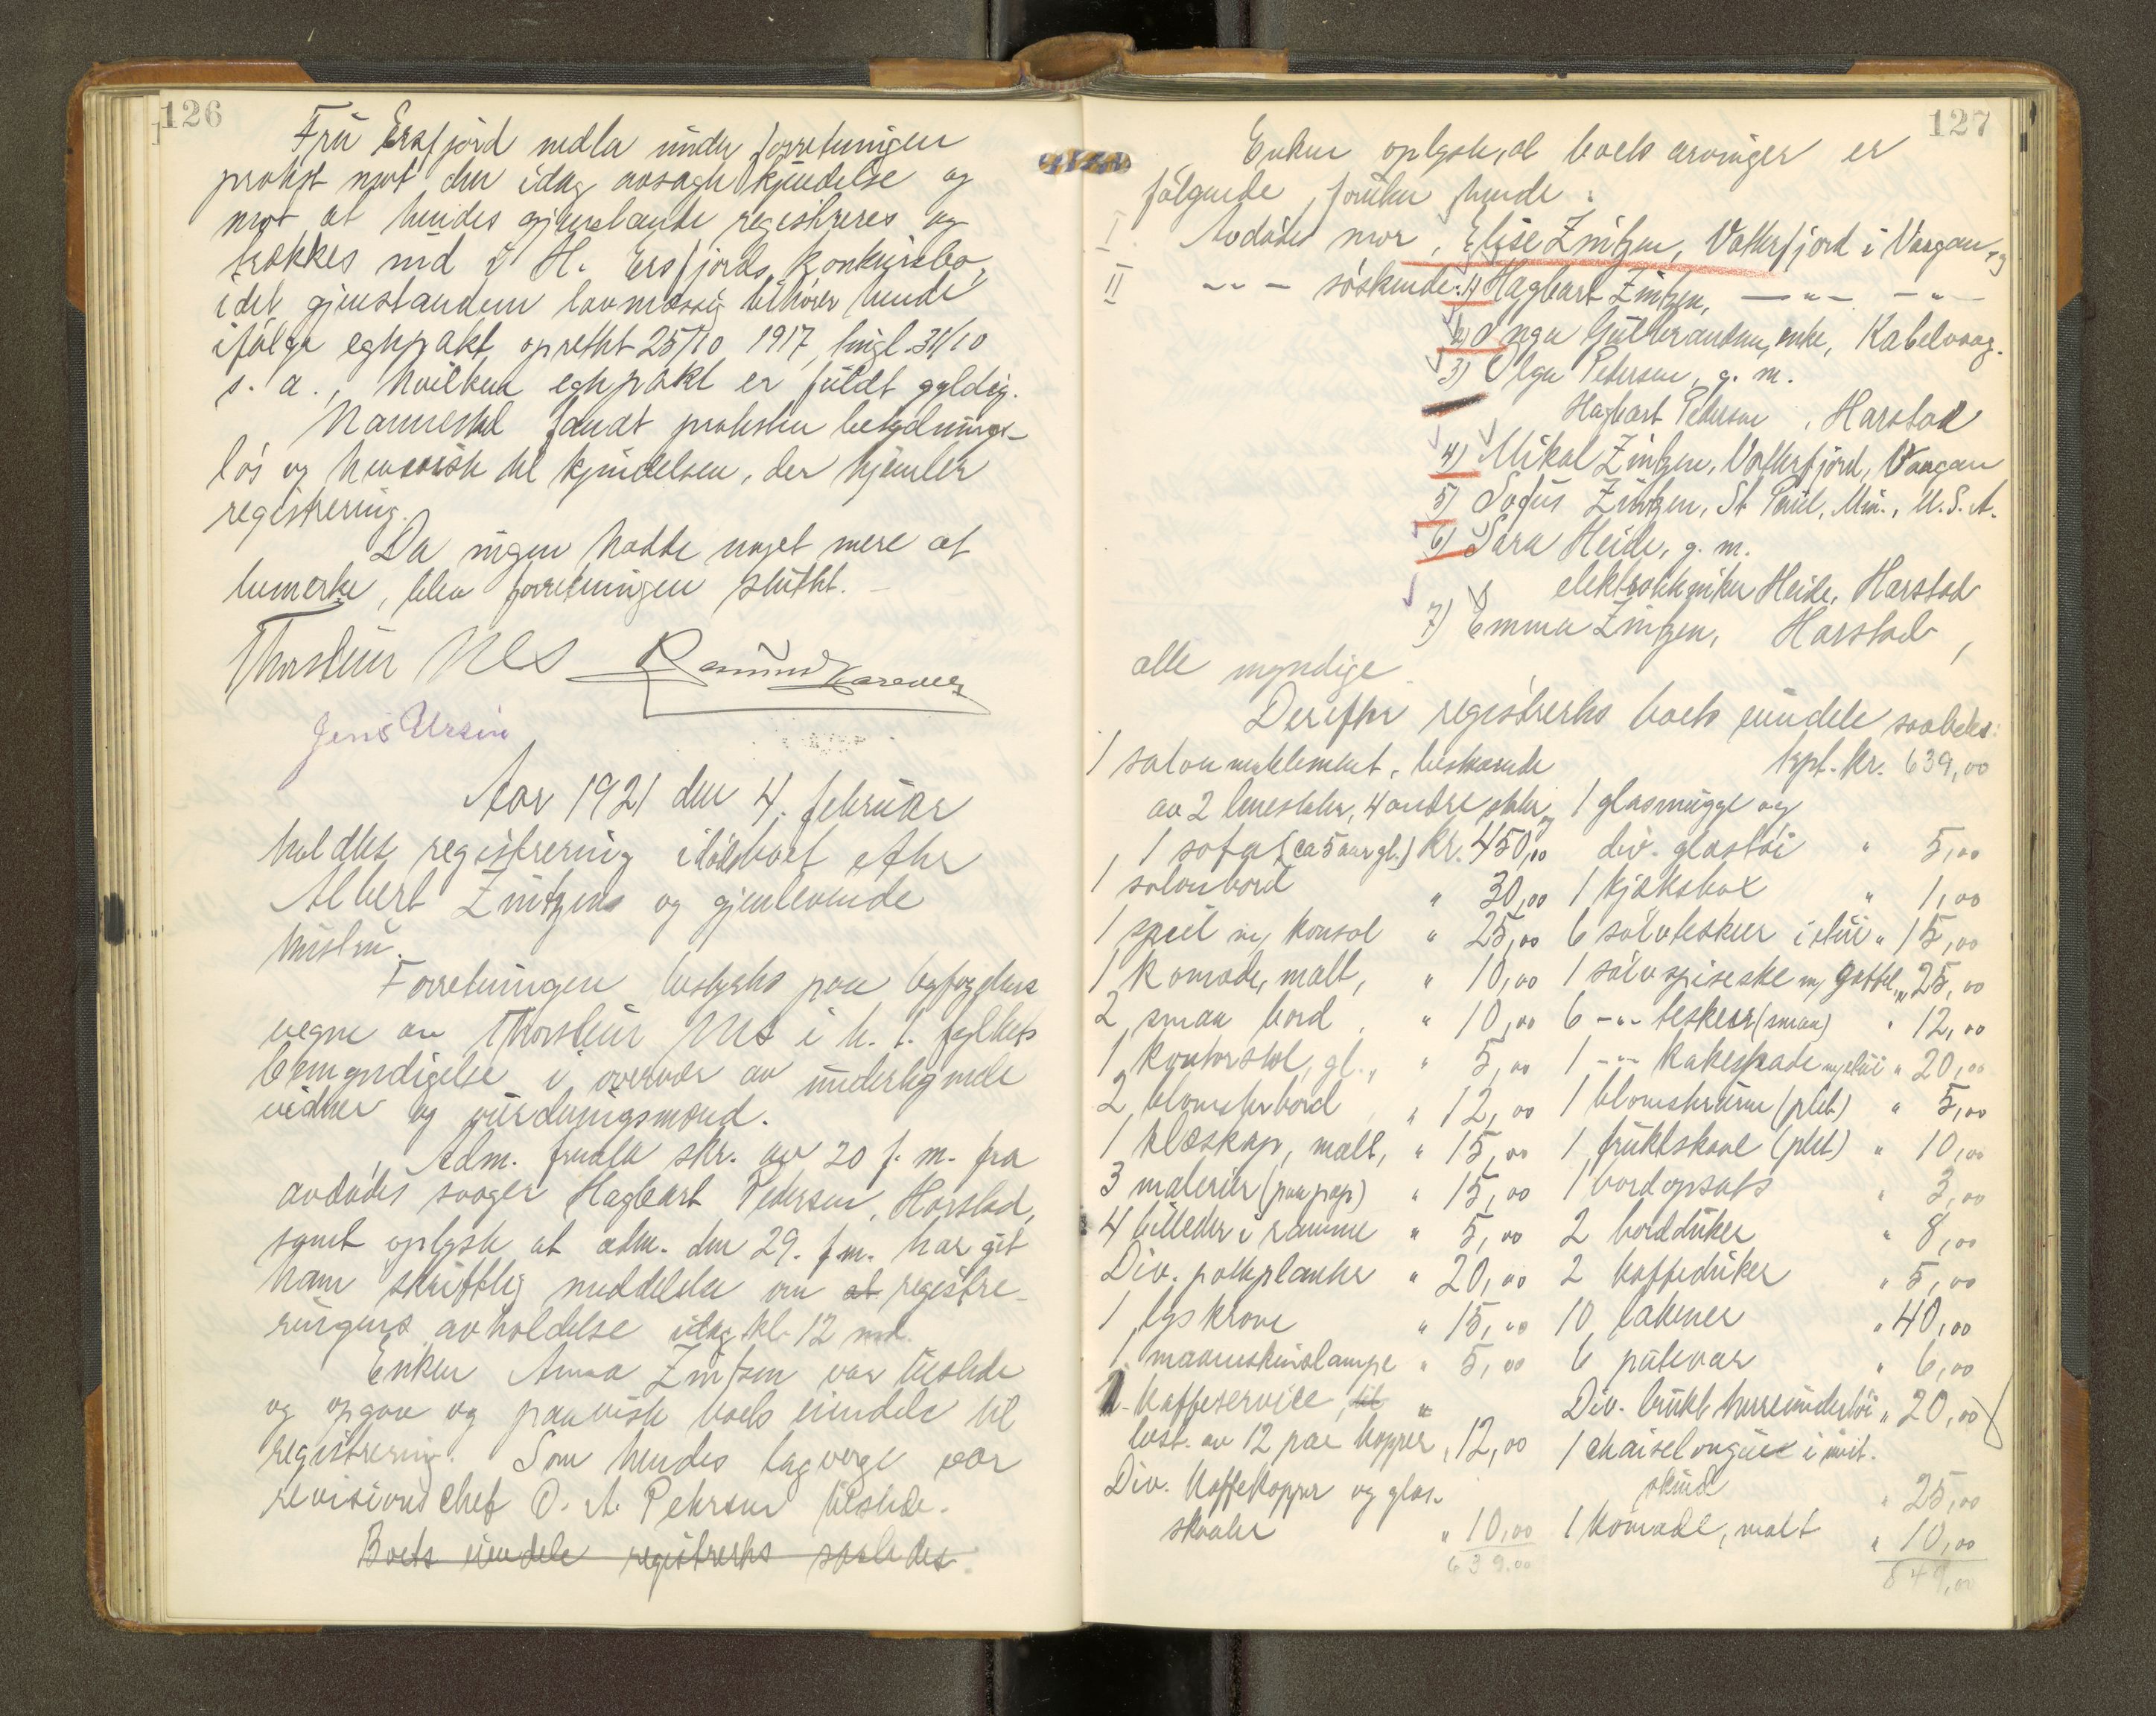 126
Fru Ersfjord nedla under forretningen
protest mot den idag avsagte kjendelse og
mot at hendes gjenstande registreres og
trækkes ind i H. Ersfjords konkursbo,
idet gjenstandene lovmæssig tilhører hende
ifølge egtepakt, oprettet 25/10 1917, tingl. 31/10
s. a., hvilken egtepakt er fuldt gyldig.
Namsretten fandt protesten betydnings-
løs og henviste til kjendelsen, der hjemler
registrering.
Da ingen hadde noget mere at
bemerke, blev forretningen sluttet.
Thorstein Nes
Jens Ursin
Aar 1921 den 4. februar
holdtes registrering i dødsboet efter
Albert Zintzens og gjenlevende
hustru.
Forretningen bestyrtes paa byfogdens
vegne av Thorstein Nes i h. t. fylkets
bemyndigelse i overvær av undertegnede
vidner og vurderingsmænd.
Adm. fremla skr. av 20 f. m. fra
avdødes svoger Hagbart Pedersen, Harstad,
samt oplyste at adm. den 29. f.m. har git
ham skriftlig meddelelse om at registre-
ringens avholdelse idag kl. 12 md.
Enken Anna Zintzen var tilstede
og opgav og paaviste boets eiendele til
registrering. Som hendes lagverge var
revisionschef O. A. Petersen tilstede.
Boets eiendele registrertes saaledes
127
Enken oplyste, at boets arvinger er
følgende, foruten hende:
I. Avdødes mor, Elise Zintzen, Vatterfjord i Vaagan, og
II -"- søskende: 1) Hagbart Zintzen, -"- -"-
2) Inga Guttormsen, enke, Kabelvaag.
3) Olga Pedersen, g. m.
Hagbart Pedersen, Harstad
4) Mikal Zintzen, Vatterfjord, Vaagan
5) Sofus Zintzen, St Paul, Min., U.S.A.
6) Sara Heide, g. m.
elektrotekniker Heide, Harstad
7) Emma Zintzen, Harstad,
alle myndige.
Derefter registrertes boets eiendele saaledes:
1 salonmøblement, bestaaende
av 2 lenestoler, 4 andre stoler og
1 sofa (ca 5 aar gl.) kr. 450,00
1 salonbord " 30,00
1 speil m/ konsol " 25,00
1 komode, malt, " 10,00
2 smaa bord " 10,00
1 kontorstol, gl., " 5,00
2 blomsterbord " 12,00
1 klæskap, malt, " 15,00
3 malerier (paa pap) " 15,00
4 billeder i ramme " 5,00
Div. potteplanter " 20,00
1 lyskrone " 15,00
1 maaneskinslampe " 5,00
1 kaffeservice,
best. av 12 par kopper " 12,00
Div. kaffekopper og glas-
skaaler " 10,00
639.00
trpt. kr. 639,00
1 glasmugge og
div. glastøi " 5,00
1 kjæksbox " 1,00
6 sølvteskeer i etui " 15,00
1 sølvspiseske m/ gaffel " 25,00
6 -"- teskeer (smaa) " 12,00
1 -"- kakespade m/ etui " 20,00
1 blomsterurne (plet) " 5,00
1 fruktskaal (plet) " 10,00
1 bordopsats " 3,00
2 bordduker " 8,00
2 kaffeduker " 5,00
10 lakener " 40,00
6 putevar " 6,00
Div. brukt herreundertøi " 20,00
1 chaiselongue i imit.
skind " 25,00
1 komode, malt " 10,00
849,00